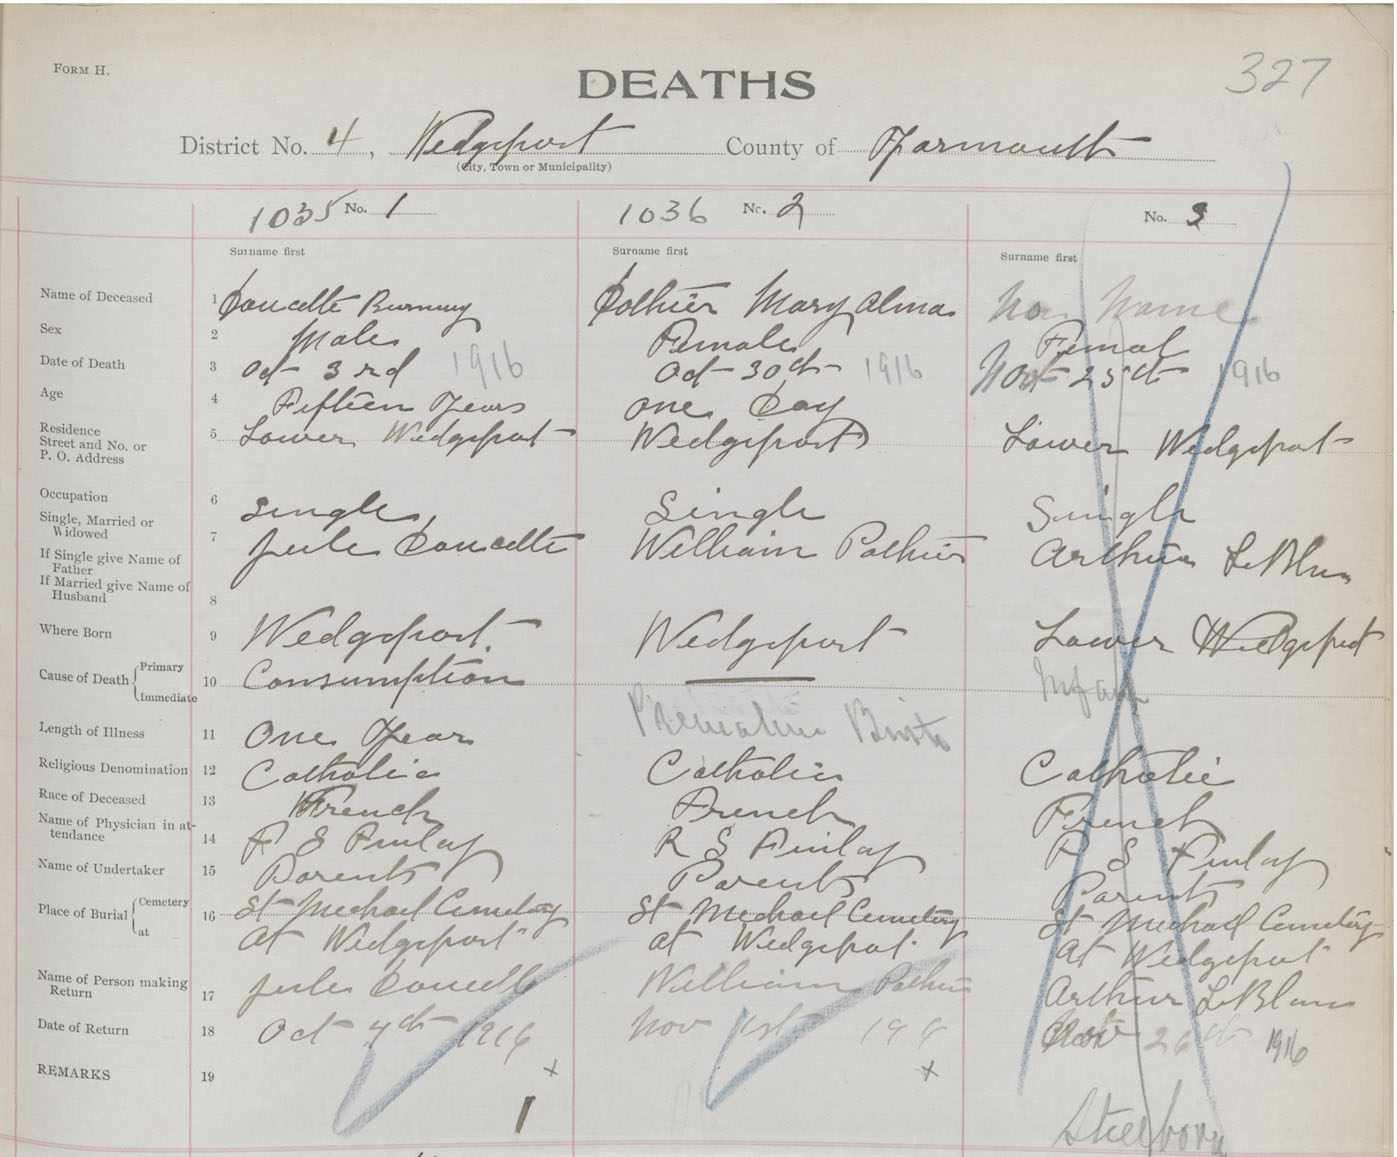 FORM H.
327
DEATHS
District No. 4, Wedgeport County of Yarmouth
(City, Town or Municipality)
1035 No. 1 1036 No. 2 No. 3
Surname first Surname first Surname first
Name of Deceased 1 Doucette Burnney Pothier Mary Alma No Name
Sex 2 Male Female Femal
Date of Death 3 Oct 3rd 1916 Oct 30th 1916 Nov 25th 1916
Age 4 Fifteen Years one Day
Residence
Street and No. or
P. O. Address 5 Lower Wedgeport Wedgeport Lower Wedgeport
Occupation 6
Single, Married or
Widowed 7 Single Single Single
If Single give Name of
Father Jule Doucette William Pothier Arthur LeBlanc
If Married give Name of
Husband 8
Where Born 9 Wedgeport. Wedgeport Lower Wedgeport
Cause of Death Primary
Immediate 10 Consumption Premature Birth
Length of Illness 11 One Year
Religious Denomination 12 Catholic Catholic Catholic
Race of Deceased 13 French French French
Name of Physician in at-
tendance 14 R S Finlay R S Finlay R S Finlay
Name of Undertaker 15 Parents Parents Parents
Place of Burial Cemetery
at 16 St Michael Cemetery St Michael Cemetery St Michael Cemetery
At Wedgeport at Wedgeport At Wedgeport
Name of Person making
Return 17 Jule Doucett William Pothier Arthur LeBlanc
Date of Return 18 Oct 4th 1916 Nov 1st 1916 Nov 26th 1916
REMARKS 19 x x
1 Stillborn